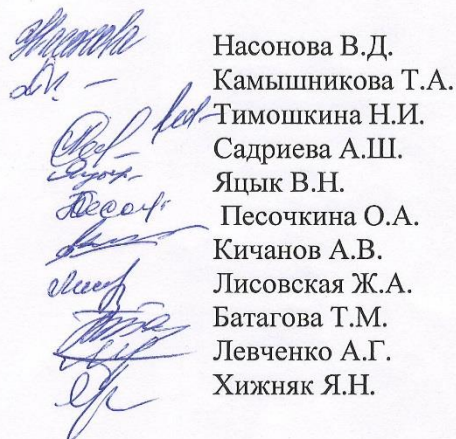 Насонова Насонова В.Д.
Камышникова Т.А.
Тимошкина Н.И.
Садриева А.Ш.
Яцык В.Н.
Песочкина О.А.
Кичанов А.В.
Лисовская Ж.А.
Батагова Т.М.
Левченко А.Г.
Хижняк Я.Н.